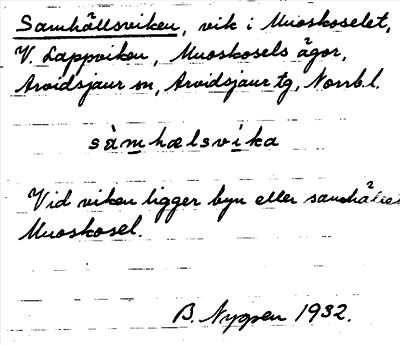 Samhällsviken, vik i Muoskoselet,
V. Lappviken, Muoskosels ägor,
Arvidsjaur sn, Arvidsjaur tg, Norrb.l.
sàmhælsvika
Vid viken ligger byn eller samhället
Muoskosel.
B. Nygren 1932.